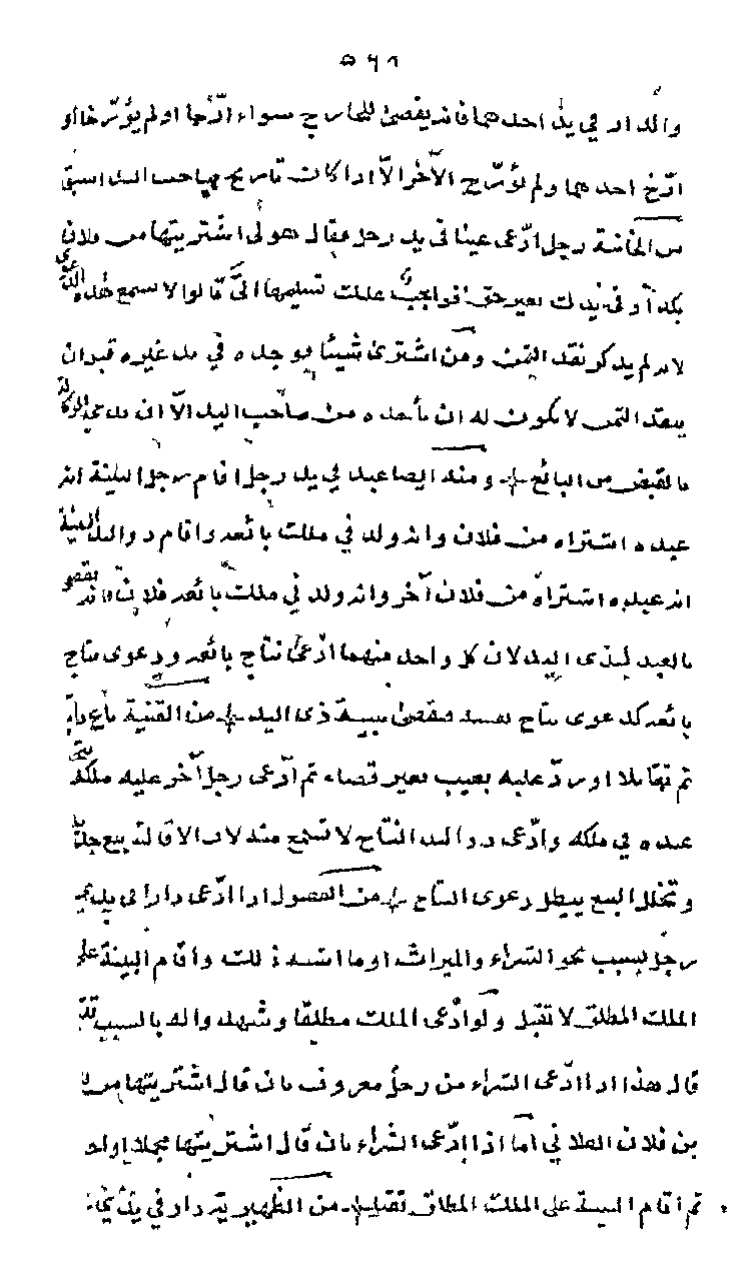 ٥٦١
والدار في يد احدهما فانه يقضى للخارج سواء ارّخا او لم يؤرّخا او
ارّخ احدهما ولم يؤرّخ الآخر الّا اذا كان تاريخ صاحب اليد اسبق
من الخانية رجل ادّعى عينا في يد رجل فقال هو لى اشتريتها من فلان
بكذا وفي يدك بغير حق فواجب عليك تسليمها الىّ قالوا لا تسمع هذه الدعوى
لانه لم يذكر نقد الثمن ومن اشترى شيئا فوجده في يد غيره قبل ان
ينقد الثمن لا يكون له ان يأخذه من صاحب اليد الّا ان يدعى الوكالة
بالقبض من البائع ومنه ايضا عبد في يد رجل اقام رجل البينة انه
عبده اشتراه من فلان وانه ولد في ملك بائعه واقام ذو اليد البينة
انه عبده اشتراه من فلان آخر وانه ولد في ملك بائعه فلان فانه يقضى
بالعبد لذى اليد لان كل واحد منهما ادّعى نتاج بائعه ودعوى نتاج
بائعه كدعوى نتاج نفسه فيقضى ببينة ذى اليد من القنية باع دابة
ثم تقايلا او ردّ عليه بعيب بغير قضاء ثم ادّعى رجل آخر عليه ملكه
عنده في ملكه وادّعى ذو اليد النتاج لا تسمع منه لان الاقالة بيع جديد
وتخلل البيع يبطل دعوى النتاج من الفصول اذا ادّعى دارا في يد
رجل بسبب نحو الشراء والميراث او ما اشبه ذلك واقام البينة على
الملك المطلق لا تقبل ولو ادّعى الملك مطلقا وشهدوا له بالسبب تقبل
قال هذا اذا ادّعى الشراء من رجل معروف بان قال اشتريتها من فلان
بن فلان الفلاني اما اذا ادّعى الشراء بان قال اشتريتها مجملا
ثم اقام البينة على الملك المطلق تقبل من الظهيرية دار في يد